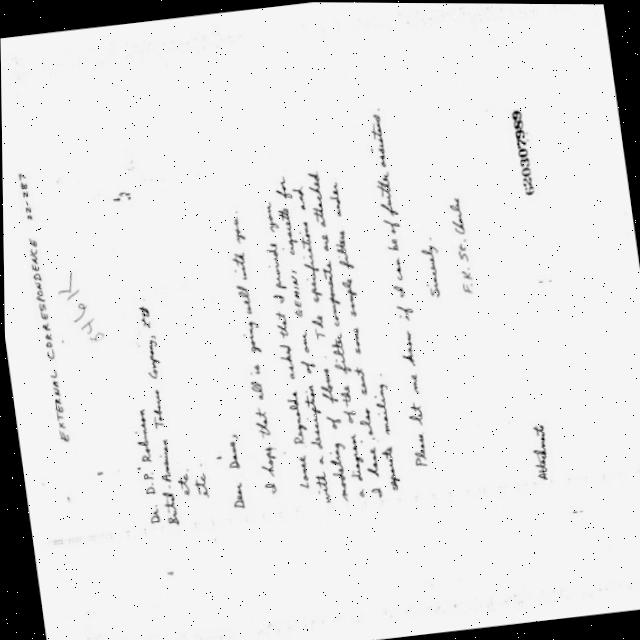 EXTERNAL CORRESPONDENCE 22-287
Dr. D.P. Robinson
British American Tobacco Company, Ltd
etc.
etc.
Dear Dave,
I hope that all is going well with you.
Louise Reynolds asked that I provide you
with a description of our GEMINI capability for
modeling of flows. The specifications and
a diagram of the filter components are attached
I have also sent some sample filters under
separate mailing.
Please let me know if I can be of further assistance.
Sincerely,
F.K. St. Charles
Attachments
620307989